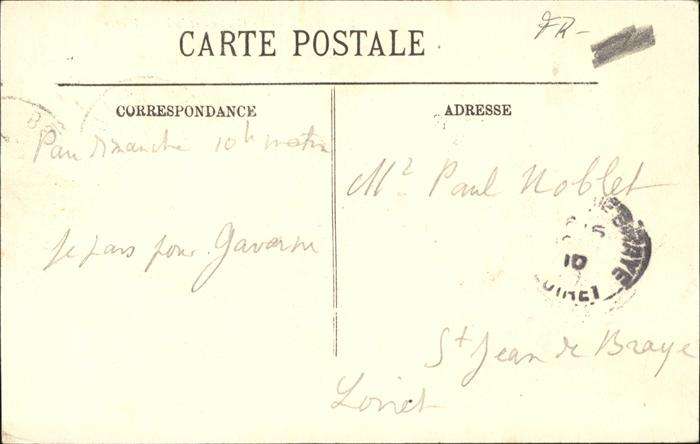 FR-
CARTE POSTALE
CORRESPONDANCE
ADRESSE
Pau Dimanche 10h matin
Je pars pour Gavarnie
Mr Paul Noblet
St Jean de Braye
Loiret
BRAYE
10
LOIRET